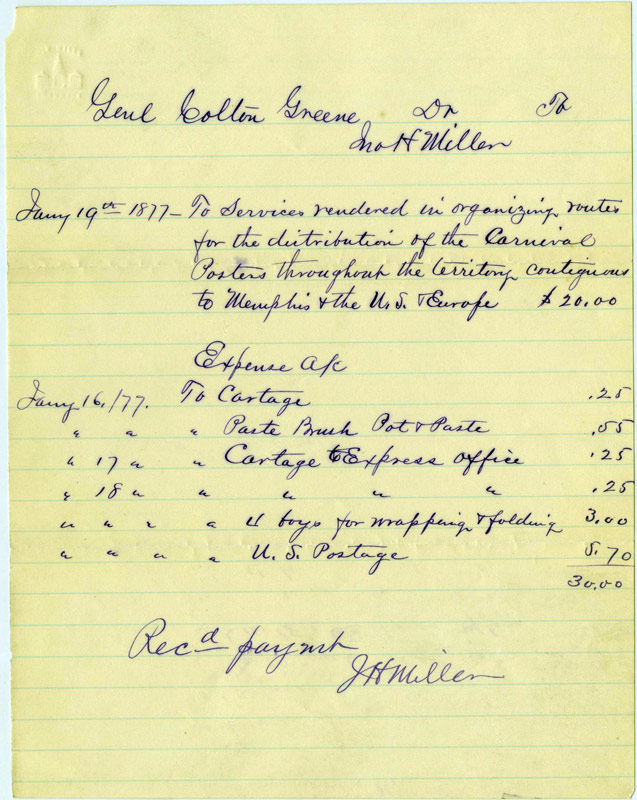 Genl Colton Greene Dr To
Jno H Miller
Jany 19th 1877 - To Services rendered in organizing routes
for the distribution of the Carnival
Posters throughout the territory contiguous
to Memphis & the U.S. & Europe $ 20.00
Expense A/c
Jany 16./77. To Cartage .25
" " " Paste Brush Pot & Paste .55
" 17 " " Cartage to Express office .25
" 18 " " " " " .25
" " " " 4 boys for wrapping & folding 3.00
" " " " U.S. Postage 5.70
30.00
Recd paymt
J H Miller